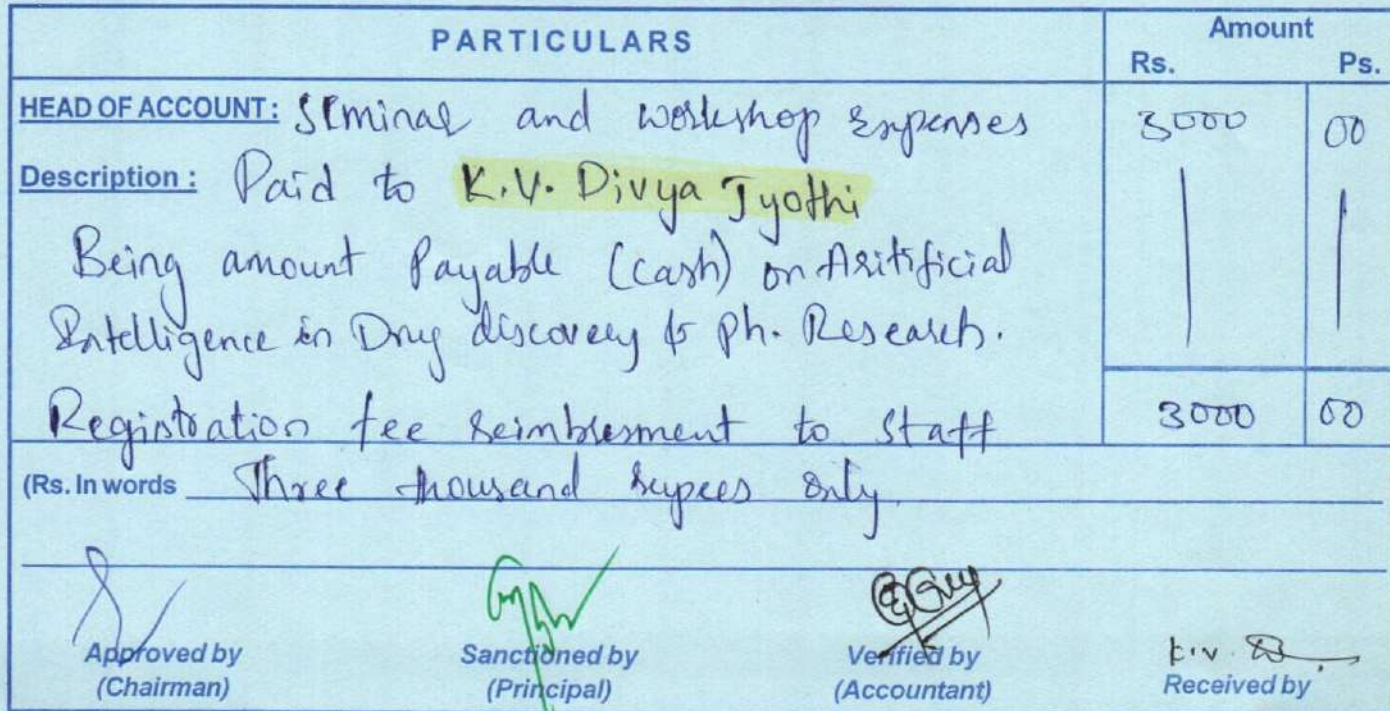 PARTICULARS
Amount
Rs. Ps.
HEAD OF ACCOUNT: Seminar and workshop Expenses 3000 00
Description: Paid to K.V. Divya Jyothi
Being amount Payable (cash) on Aritificial
Intelligence in Drug discovery & ph. Research.
Registration fee reimblesment to staff 3000 00
(Rs. In words Three thousand rupees only.
Approved by Sanctioned by Verified by K.V.
(Chairman) (Principal) (Accountant) Received by